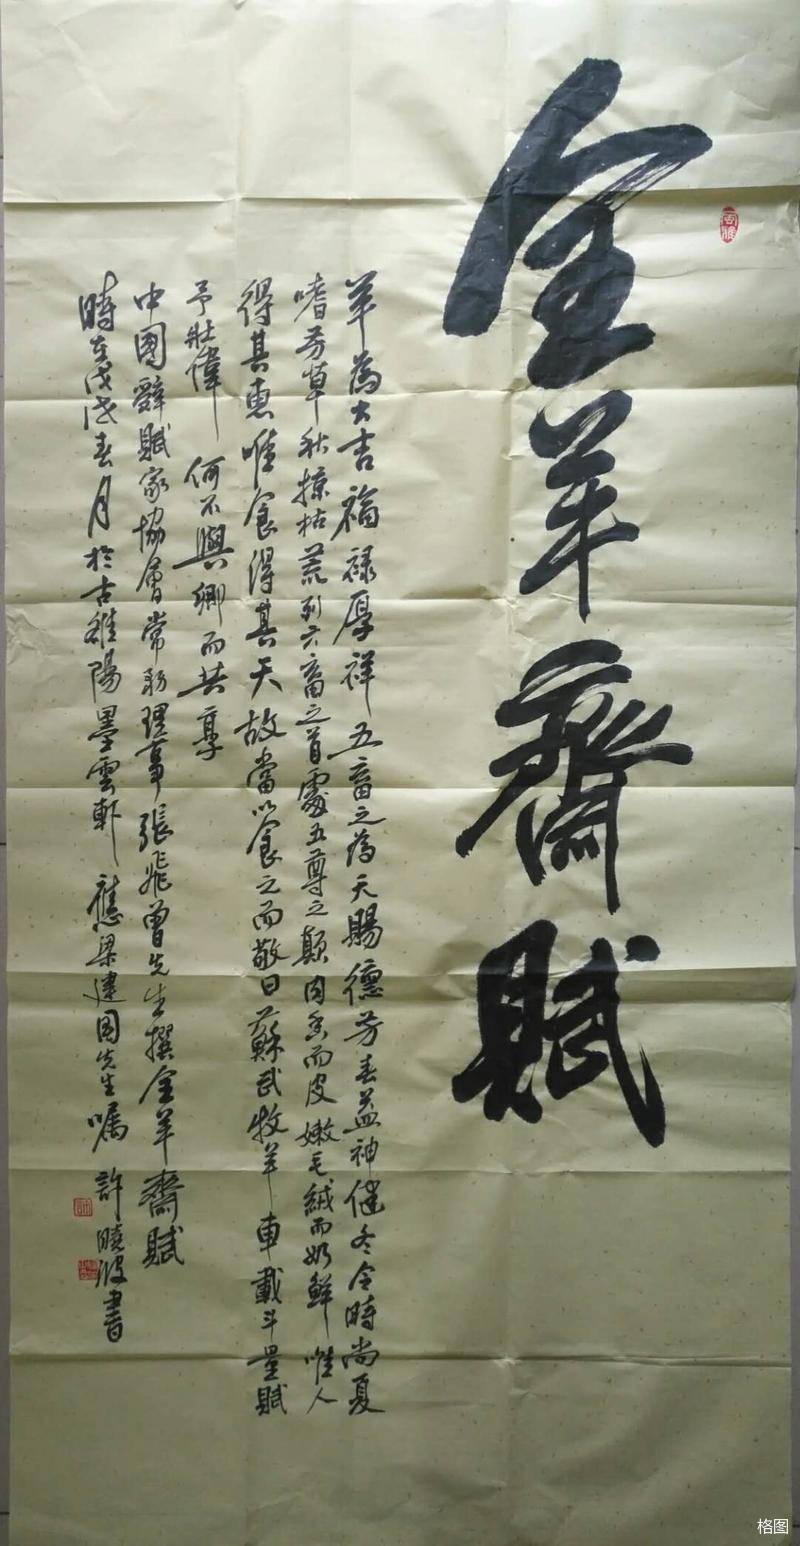 全羊齋賦
羊為大吉福祿厚祥五畜之為天賜德芳春益神健冬令時尚夏
嗜芳草秋掠枯荒列六畜之首處五尊之顛肉香而皮嫩毛絨而奶鮮唯人
得其惠唯食得其天故當以食之而敬曰蘇武牧羊車載斗量賦
予壯偉何不與卿而共享
中國辭賦家協會常務理事張飛曾先生撰全羊齋賦
時在戊戌春月於古雒陽墨雲軒應梁建國先生囑許曉波書
格图